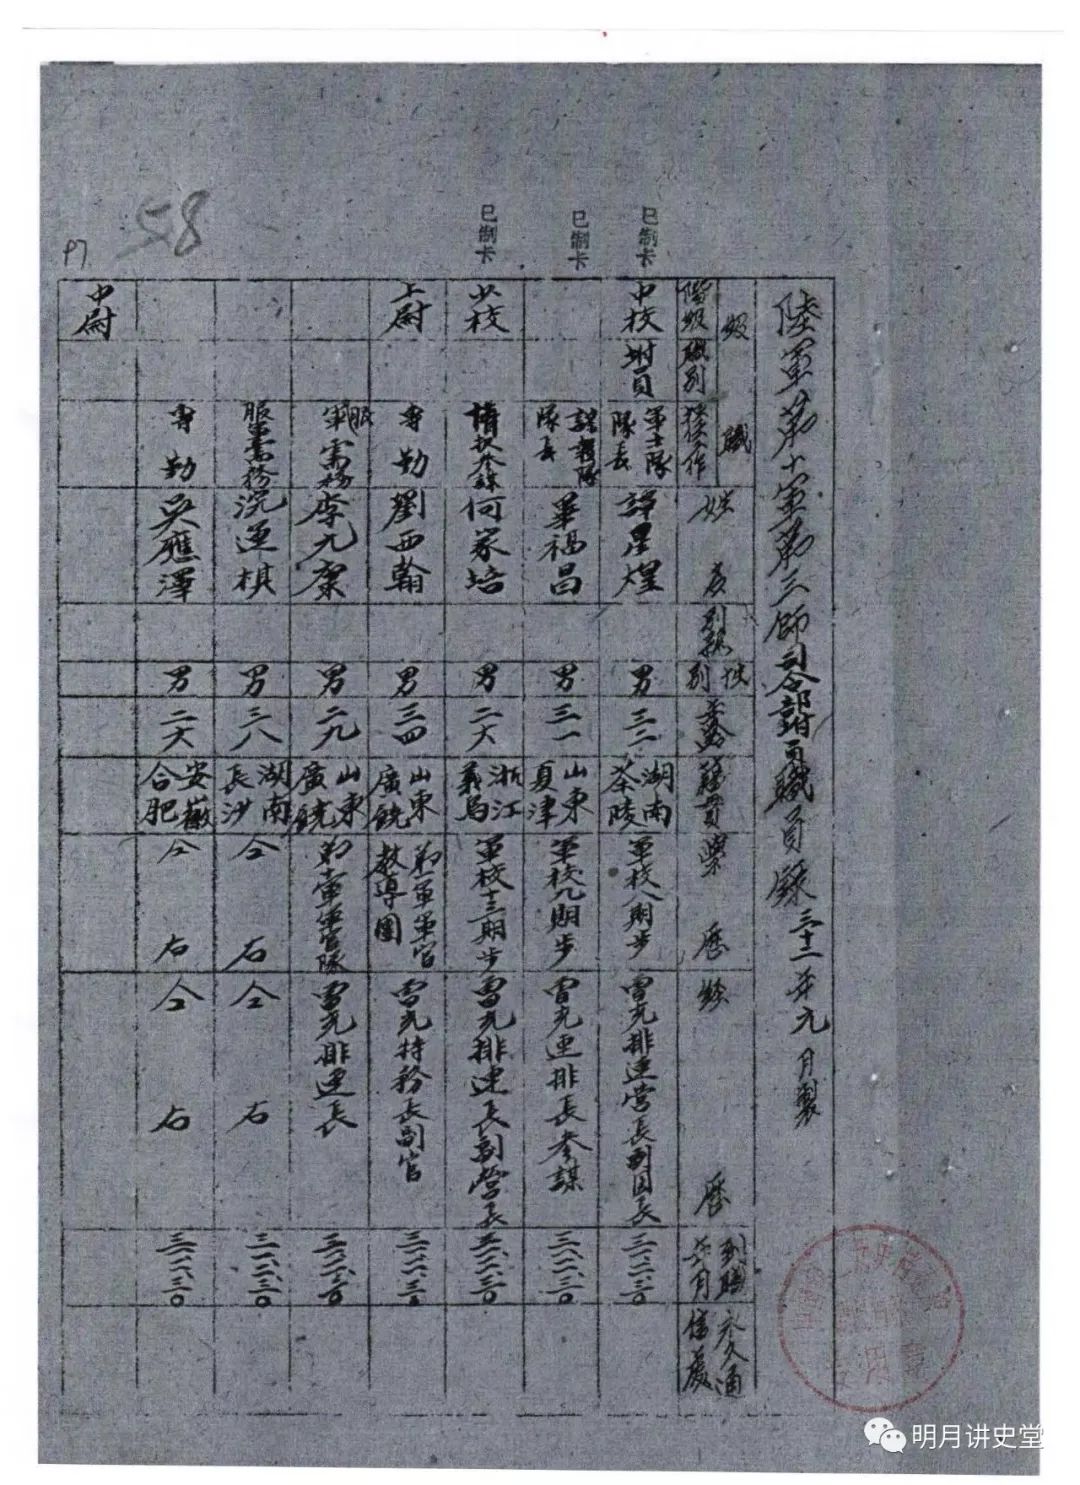 58
P7
已制卡
已制卡
已制卡
陸軍第十軍第三師司令部附員職員錄 三十二年元月製
級職
階級 職別 擔任工作
姓名
別號
性別
年齡
籍貫
學歷
經歷
到職年月
永久通信處
中校 附員 軍士隊隊長 譚星煌 男 三二 湖南茶陵 軍校八期步 曾充排連營長副團長 三一、二、三〇
諜報隊隊長 畢福昌 男 三一 山東夏津 軍校九期步 曾充連排長參謀 三一、二、三〇
少校 情報參謀 何家培 男 二六 浙江義烏 軍校十三期步 曾充排連長副營長
上尉 專勤 劉西翰 男 三四 山東廣饒 第一軍軍官教導團 曾充特務長副官
服軍需務 李九寨 男 二九 山東廣饒 軍軍官隊 曾充排連長
服軍需務 浣運棋 男 三八 湖南長沙 仝右 仝右
專勤 吳應澤 男 二六 安徽合肥 仝右 仝右
中尉
明月讲史堂